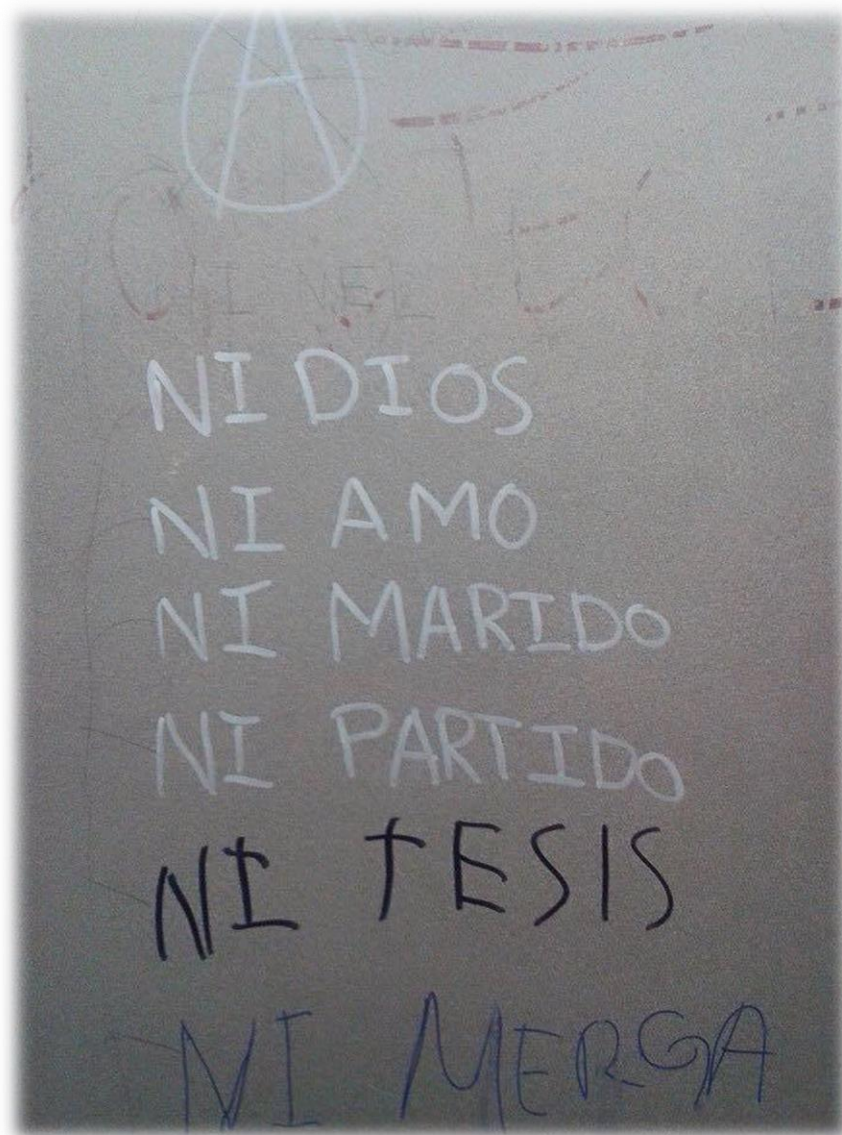 A
NI DIOS
NI AMO
NI MARIDO
NI PARTIDO
NI TESIS
NI MERGA